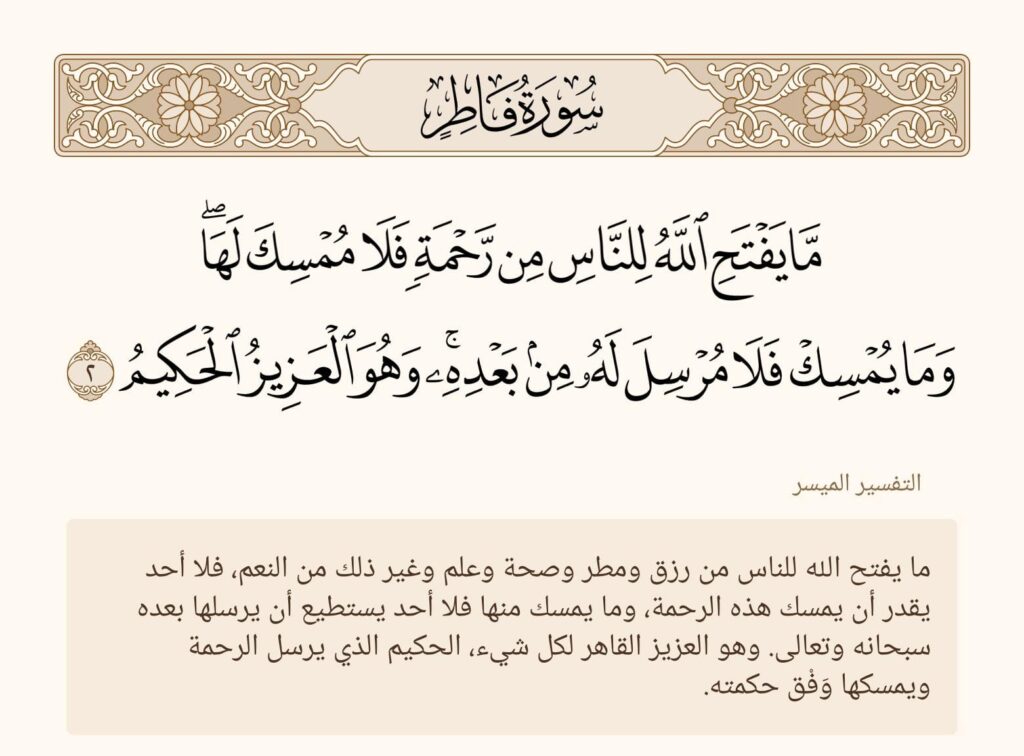 سُورَةُ فَاطِرٍ
مَّا يَفْتَحِ ٱللَّهُ لِلنَّاسِ مِن رَّحْمَةٍ فَلَا مُمْسِكَ لَهَاۖ
وَمَا يُمْسِكْ فَلَا مُرْسِلَ لَهُۥ مِنۢ بَعْدِهِۦۚ وَهُوَ ٱلْعَزِيزُ ٱلْحَكِيمُ ٢
التفسير الميسر
ما يفتح الله للناس من رزق ومطر وصحة وعلم وغير ذلك من النعم، فلا أحد
يقدر أن يمسك هذه الرحمة، وما يمسك منها فلا أحد يستطيع أن يرسلها بعده
سبحانه وتعالى. وهو العزيز القاهر لكل شيء، الحكيم الذي يرسل الرحمة
ويمسكها وَفْق حكمته.